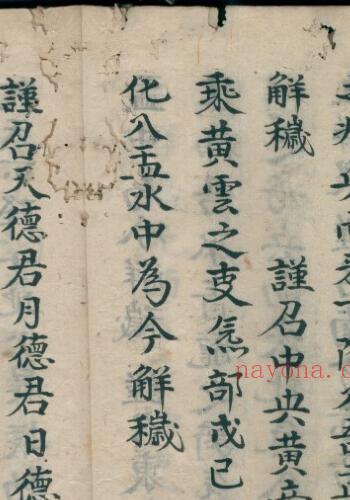 解穢 謹召中央黃
乘黃雲之炁部戊己
化入盂水中為今解穢
謹召天德君月德君日德
nayona.c